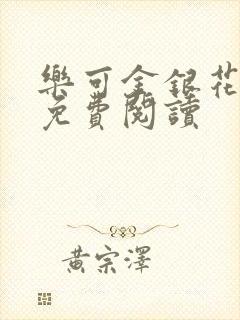 樂可金銀花
免費閱讀
黃宗澤